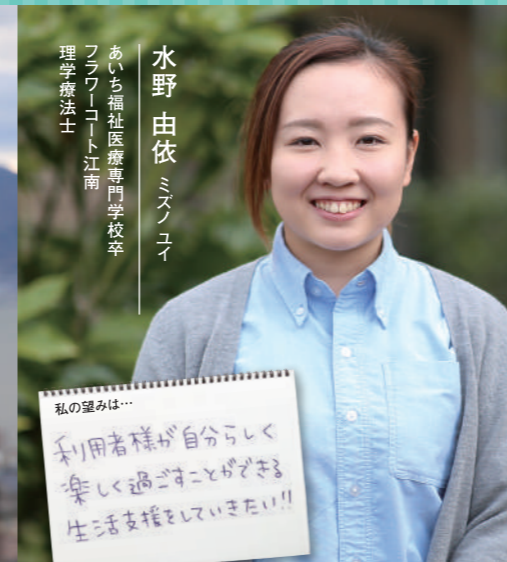 水野 由依 ミズノ ユイ
あいち福祉医療専門学校卒
フラワーコート江南
理学療法士
私の望みは…
利用者様が自分らしく
楽しく過ごすことができる
生活支援をしていきたい!!